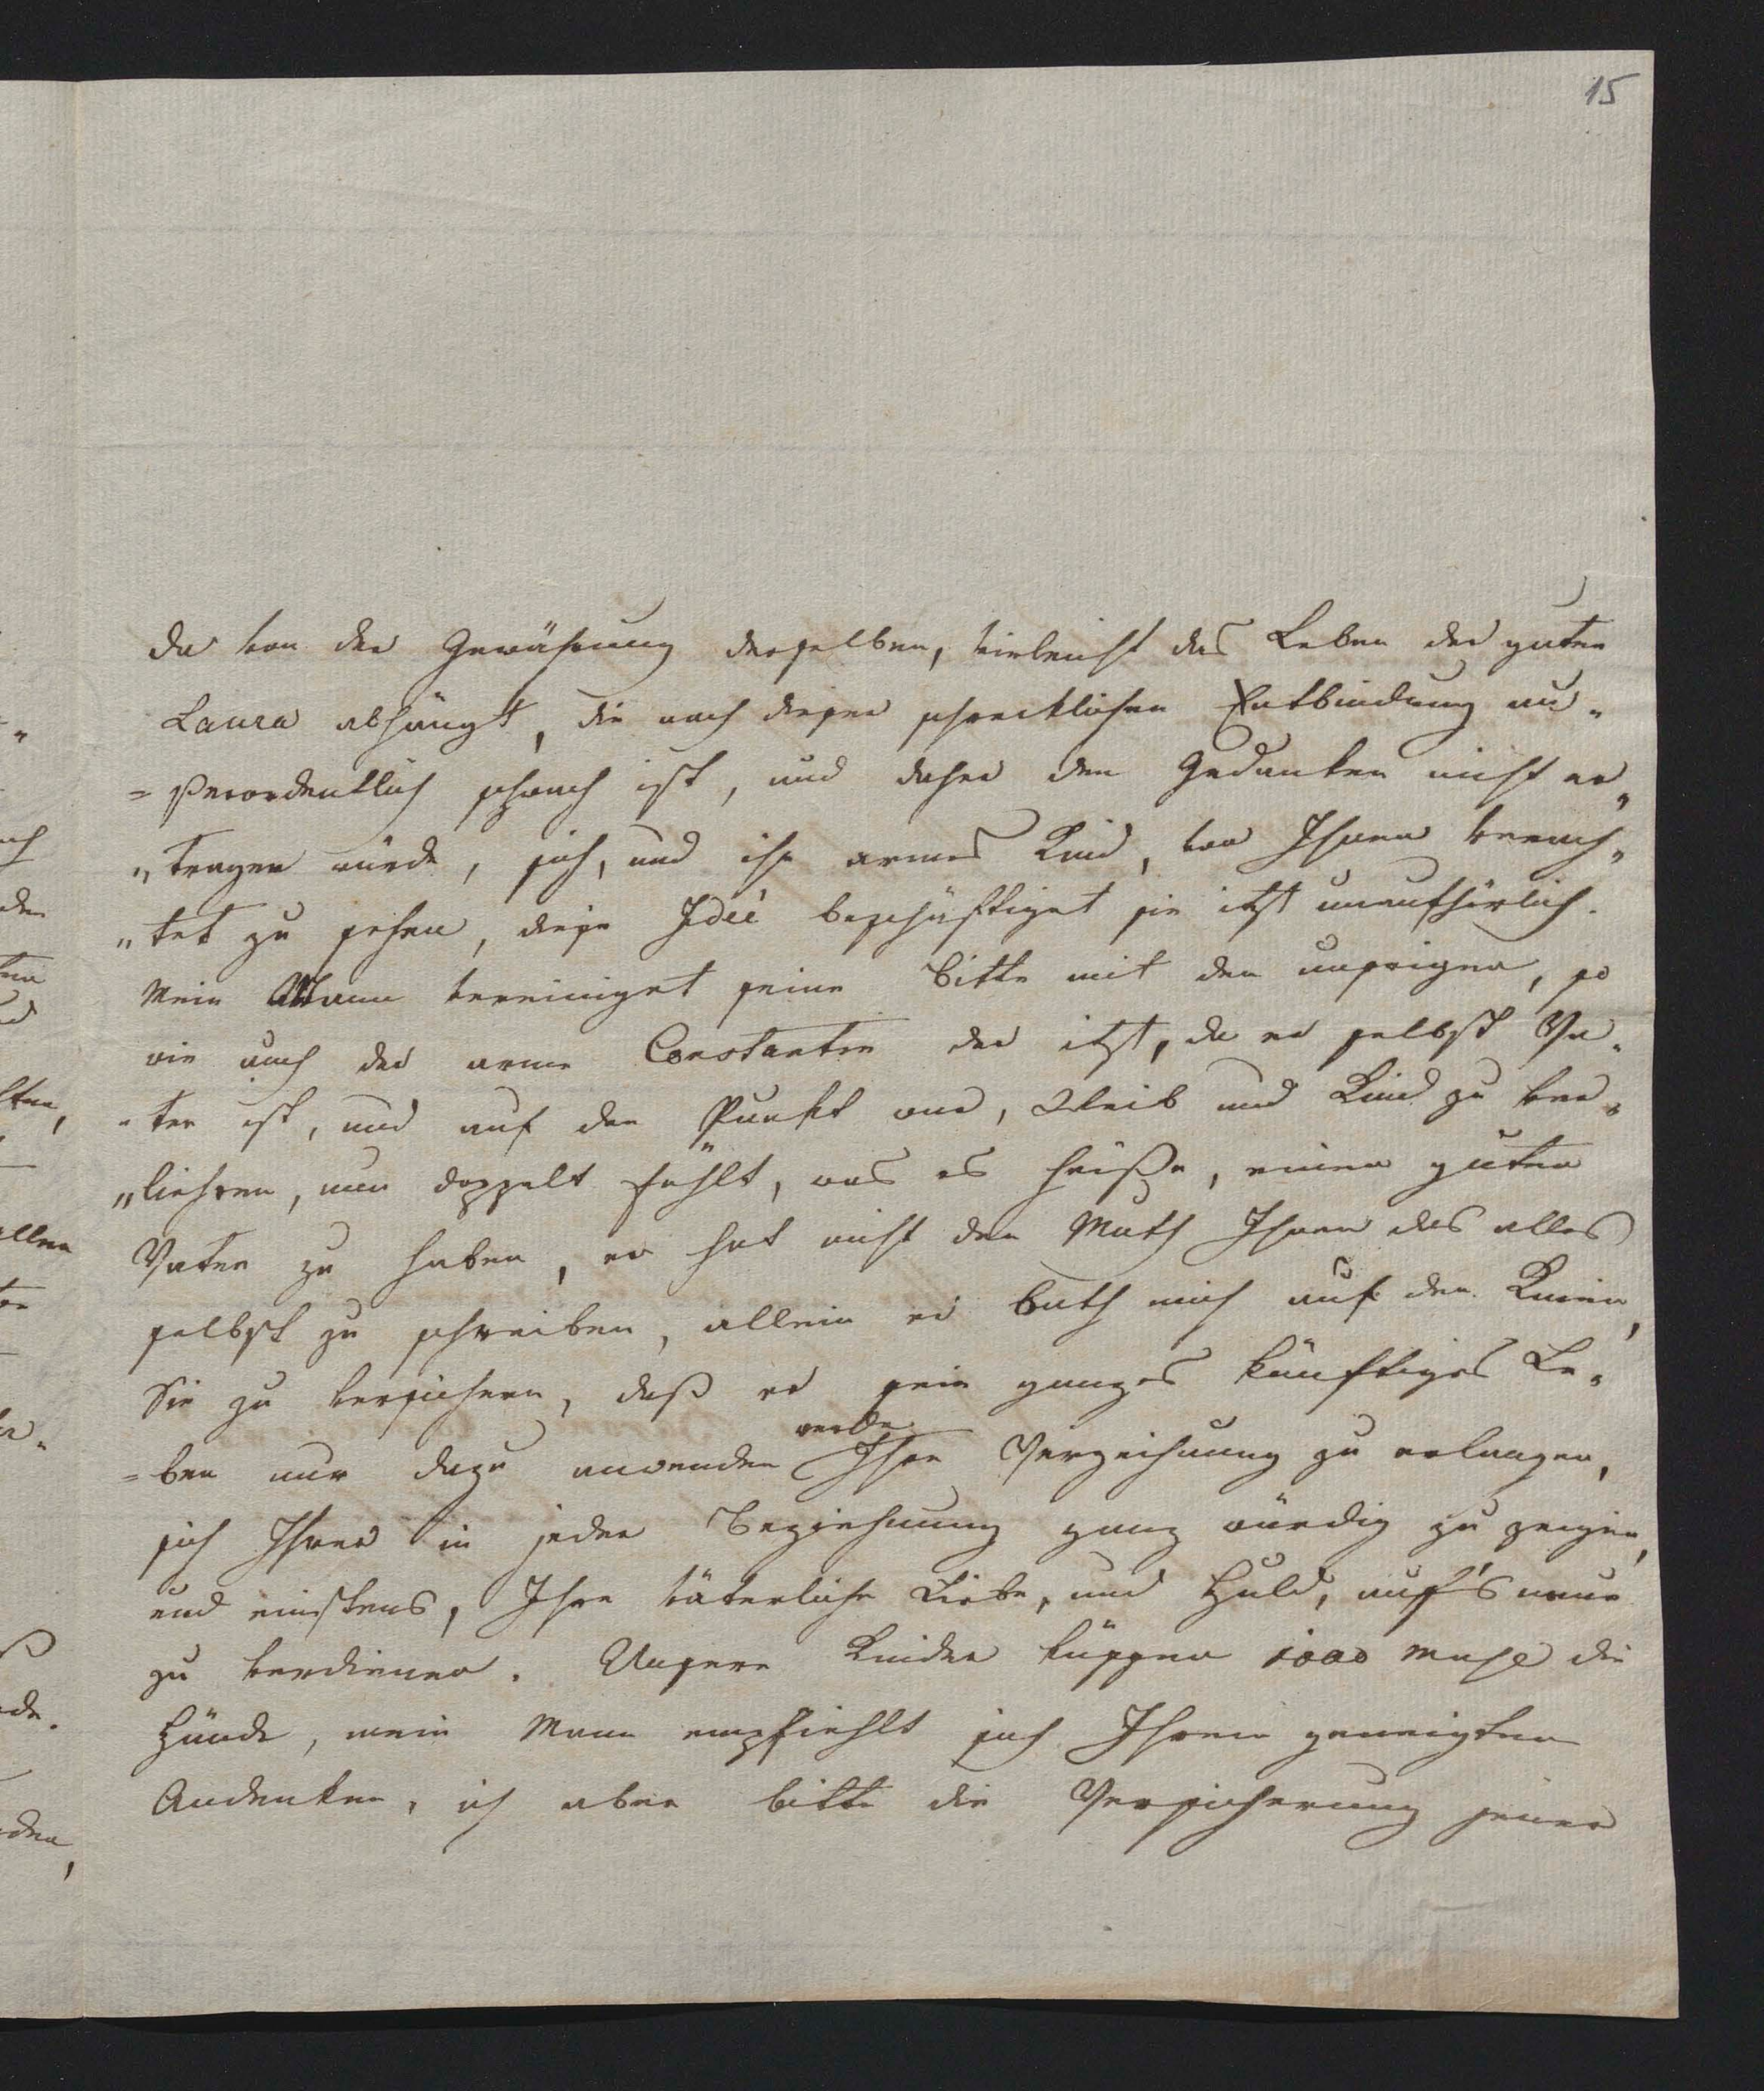 15
da von der Gewährung derselben, vieleicht das Leben der guten
Laura abhängt, die nach dieser schrecklichen Entbindung au„
=ßerordentlich schwach ist, und daher den Gedanken nicht er„
„tragen würde, sich, und ihr armes Kind, von Ihnen verach„
„tet zu sehen, diese Ideé beschäftiget sie itzt unaufhörlich.
Mein Mann vereiniget seine Bitte mit der unsrigen, so
wie auch der arme Constantin der itzt, da er selbst Va„
„ter ist, und auf den Punkt war, Weib und Kind zu ver„
„liehren, nun doppelt fühlt, was es heiße, einen guten
Vater zu haben, er hat nicht den Muth Ihnen das alles
selbst zu schreiben, allein er bath mich auf den Knien,
Sie zu versichern, daß er sein ganzes künftiges Le„
=ben nur dazu anwenden werde Ihre Verzeihung zu erlangen,
sich Ihrer in jeder Beziehung ganz würdig zu zeigen,
und einstens, Ihre väterliche Liebe, und Huld, auf's neue
zu verdienen. Unsere Kinder küssen 1000 mahl die
Hände, mein Mann empfiehlt sich Ihren geneigten
Andenken, ich aber bitte die Versicherung jener